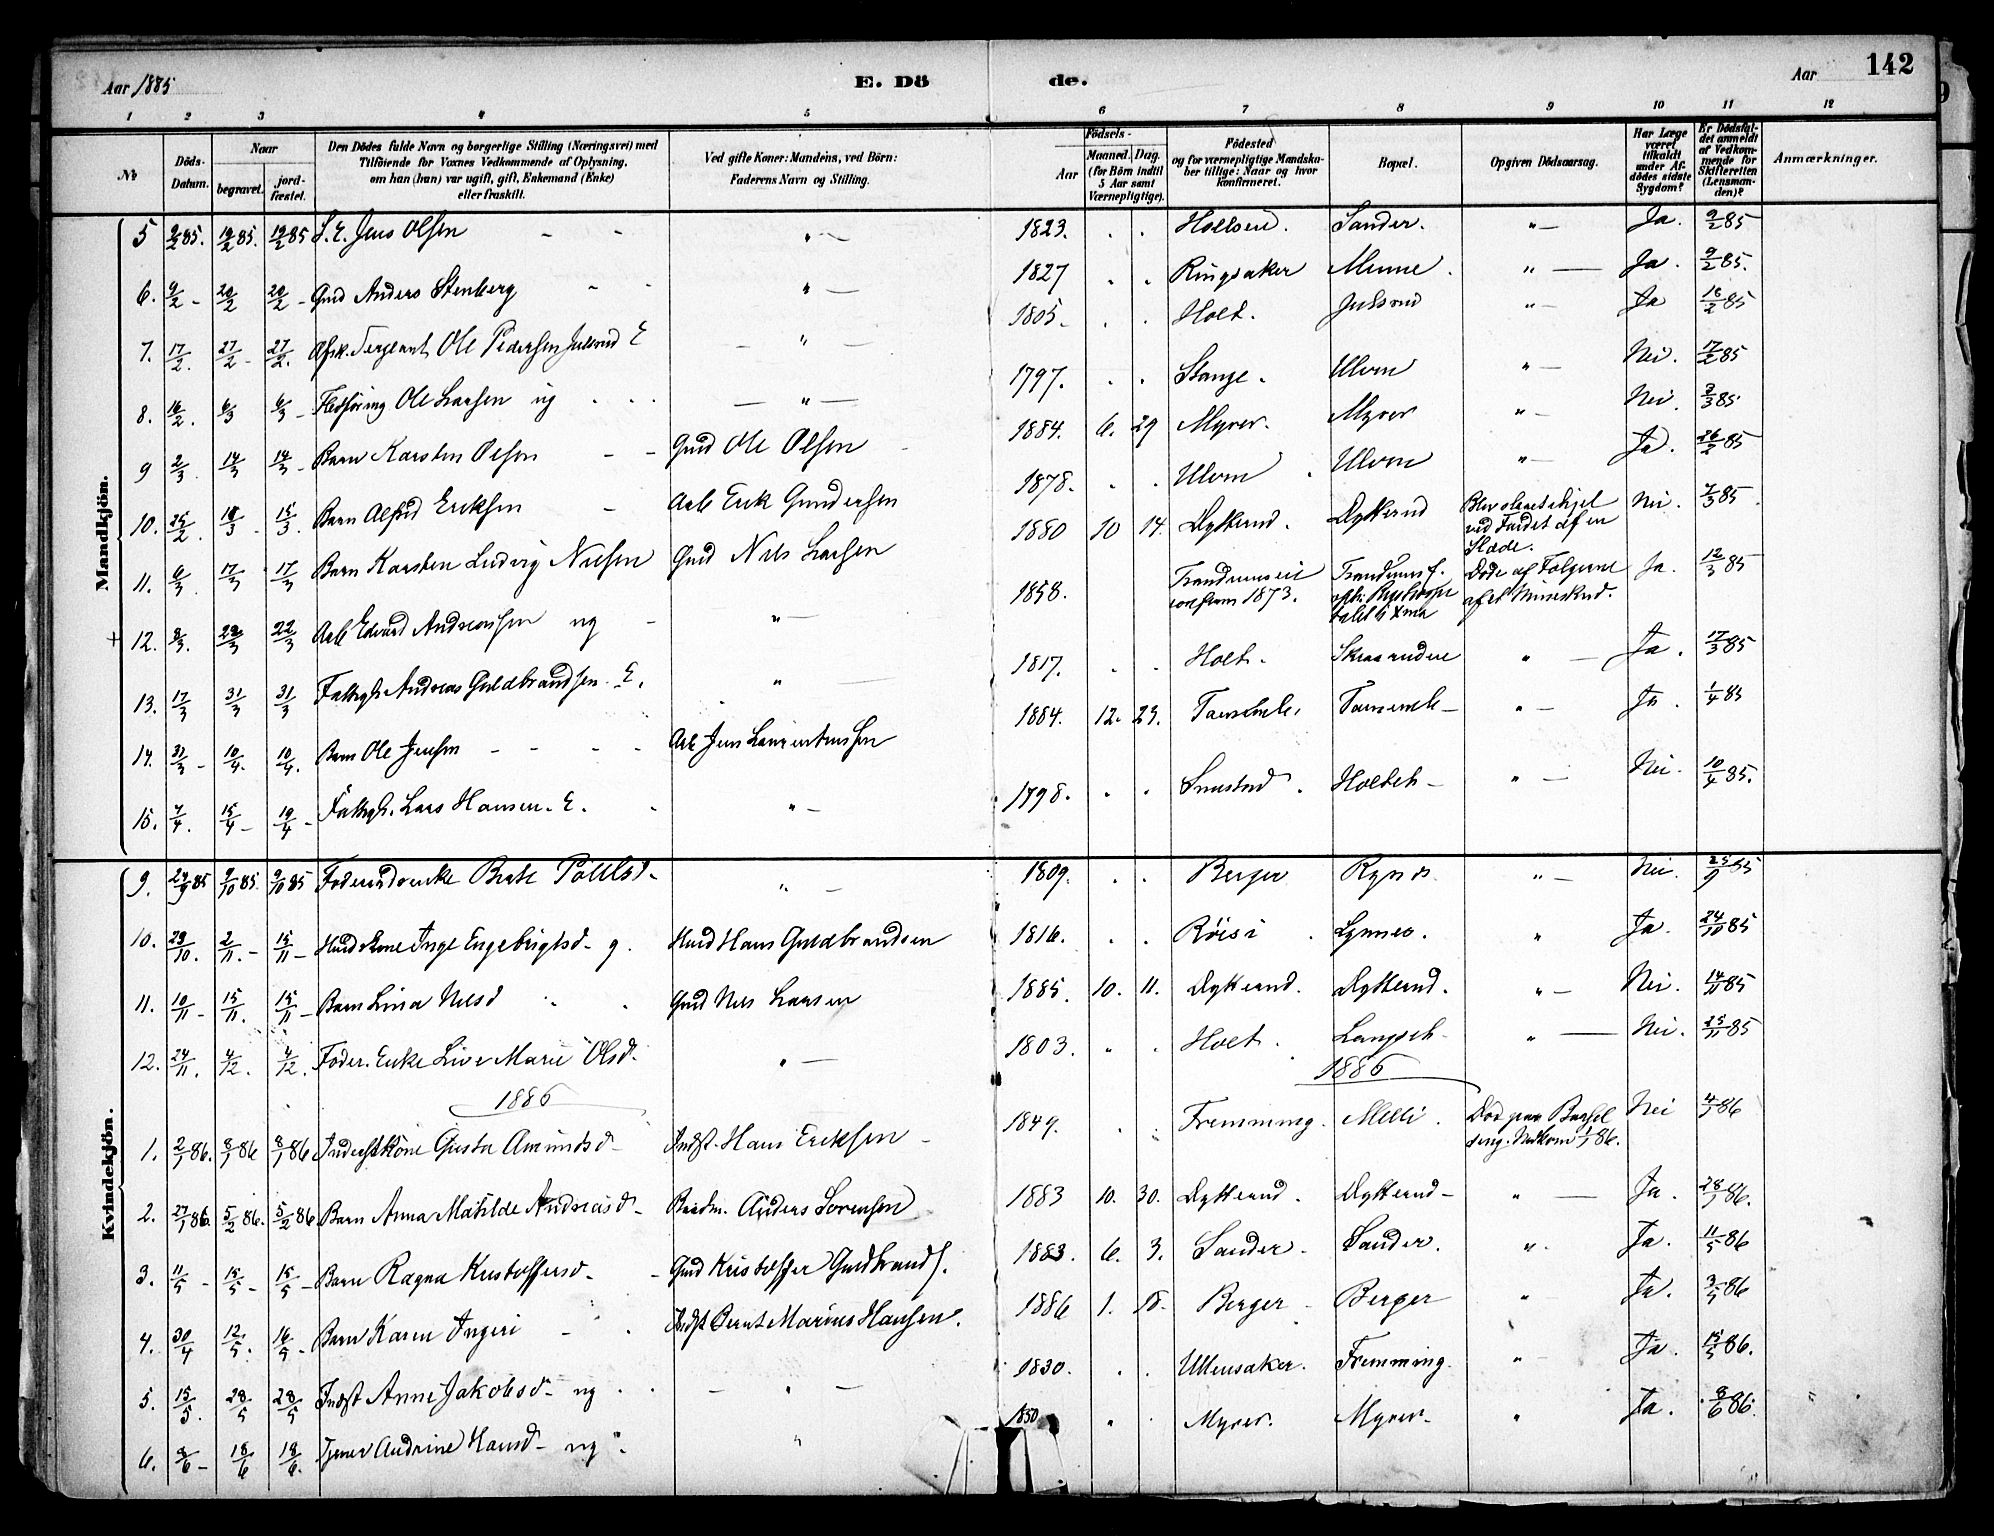 Aar 1885
E. Döde.
Aar
142
1 2 3 4 5 6 7 8 9 10 11 12
№
Döds-Datum.
Naar
begravet.
jordfæstet.
Den Dödes fulde Navn og borgerlige Stilling (Næringsvei) med
Tilföiende for Voxnes Vedkommende af Oplysning,
om han (hun) var ugift, gift, Enkemand (Enke)
eller fraskilt.
Ved gifte Koner: Mandens, ved Börn:
Faderens Navn og Stilling.
Födsels-
Aar
Maaned. Dag.
(for Börn indtil
5 Aar samt
Værnepligtige).
Födested
og for værnepligtige Mandskaber tillige: Naar og hvor
konfirmeret.
Bopæl.
Opgiven Dödsaarsag.
Har Læge
været
tilkaldt
under Afdödes sidste
Sygdom?
Er Dödsfaldet anmeldt
af Vedkommende for
Skifteretten
(Lensmanden)?
Anmærkninger.
Mandkjön.
5 9/2 85. 19/2 85. 19/2 85 S. E. Jens Olsen " — 1823. Sander. " — Ja. 9/2 85
6. 9/2 - 20/2 20/2 - Gmd Anders Stenberg " — 1827 Ringsaker Minne. " — Ja. 9/2 85.
7. 17/2. 27/2 - 27/2. Afsk. Sergeant Ole Pedersen Julsrud E " — 1805. Holt. Julsrud " — Ja 18/2 85
8. 16/2. 6/3 6/3 - Ole Larsen ug — " — 1797. Stange. Ulvin " — Nei. 17/2 85
9 2/3. 14/3 14/3 - Barn Karsten Olsen Gmd Ole Olsen 1884. 6. 29 Myrer. Myrer " — Nei. 3/3 85
10. 25/2. 15/3 Barn Alfred Eriksen Arb Erik Gundersen 1878. Ulvin Ulvin " — Ja. 26/2 85
11. 6/3. 17/3 17/3. Barn Karsten Ludvig Nielsen Gmd Nils Larsen 1880 10 14. Dytterud. Dytterud Blev slaaet ihjel
ved Faldet af en
Slæde. Nei. 7/3 85
+ 12. 8/3. 22/3 22/3 Arb Edvard Andreassen ug " — 1858. Trandumseie
confirm 1873. Døde af Følgerne
af et Mineskud. Ja. 12/3 85
13. 17/3 31/3 31/3 Fattigl. Andreas Guldbrandsen. E. " — 1817. Holt. " — Ja. 17/3 85
14. 31/3 - 10/4. 10/4. Barn Ole Jensen Arb Jens Laurentiussen 1884. 12. 23. " — Ja. 1/4 85
15. 7/4. 15/4 - 19/4 - Fattigl. Lars Hansen. E. " — 1798. Holteh — " — Nei. 10/4 85.
Kvindekjön.
9. 24/9 85 9/10 85. 9/10 85 Foderaadsenke Berte Poulsd. " — 1809. Berger " — Nei. 25/9 85
10. 23/10. 2/11. - 15/11 - Inge Engebrigtsd. g. Hans Guldbrandsen 1816. Røisi Lynnes. " Ja. 24/10 85
11. 10/11 - 15/11. 15/11 - Barn Lina Nilsd Gmd Nils Larsen 1885. 10. 11. Dytterud. Dytterud. " — Nei. 14/11 85
12. 24/11. 4/12. 4/12. Foder. Enke Live Marie Olsd. " — 1803. Holt. " — Nei. 25/11 85
1886 1886
1. 2/1 86. 8/1 86 8/1 86 Inderstkone Gusta Amundsd Indst. Hans Eriksen 1849. Fremming. Melli. Død paa Barsel
seng. Nedkom 1/1 86. Nei 4/1 86
2. 27/1 86. 5/2 86. 5/2 86 Barn Anna Matilde Andreasd. Anders Sørensen 1883 10. 30. Dytterud. Dytterud " — Ja. 28/1 86.
3. 11/5 - 15/5 - 15/5 - Barn Ragna Kristoffersd. Gmd Kristoffer Guldbrands. 1883. 6. 3. Sander. Sander. " Ja. 11/5 86
4. 30/4 12/5. 16/5 - Barn Karen Ingeri Indst Bernt Marius Hansen. 1886 1. 18. Berger Berger " Ja. 3/5 86
5. 15/5. 28/5 28/5 Indst Anne Jakobsd. ug — " — 1830. Ullensaker. Fremming. " — Ja. 15/5 86.
6. 8/6 - 18/6 18/6. Tjener Andrine Hansd. ug " 1850 Myrer. Myrer. " Ja. 8/6 86.